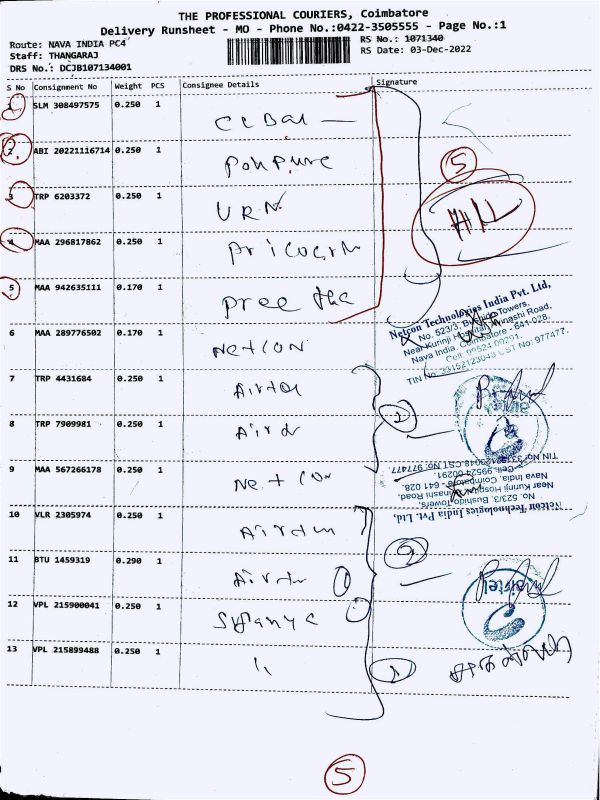 THE PROFESSIONAL COURIERS, Coimbatore
Delivery Runsheet - MO - Phone No.:0422-3505555 - Page No.:1
Route: NAVA INDIA PC4
RS No.: 1071340
Staff: THANGARAJ
RS Date: 03-Dec-2022
DRS No.: DCJB107134001
S No Consignment No Weight PCS Consignee Details Signature
1 SLM 308497575 0.250 1
2 ABI 20221116714 0.250 1
5
3 TRP 6203372 0.250 1 URN
4 MAA 296817862 0.250 1
5 MAA 942635111 0.170 1 Preetha
Netcon Technologies India Pvt. Ltd,
No. 523/3, Bushido Towers,
Near Kurinji Hospital, Avinashi Road,
Nava India, Coimbatore - 641 028.
Cell: 99524 00291.
TIN No: 33152123048 CST No: 977477.
6 MAA 289776502 0.170 1 NETCON
7 TRP 4431684 0.250 1 Airtel
8 TRP 7909981 0.250 1
9 MAA 567266178 0.250 1 Netcon
Netcon Technologies India Pvt. Ltd,
No. 523/3, Bushido Towers,
Near Kurinji Hospital, Avinashi Road,
Nava India, Coimbatore - 641 028
Cell: 99524 00291.
TIN No: 33152123048 CST No: 977477.
10 VLR 2305974 0.250 1
11 BTU 1459319 0.290 1
airtel
12 VPL 215900041 0.250 1
13 VPL 215899488 0.250 1 "
5